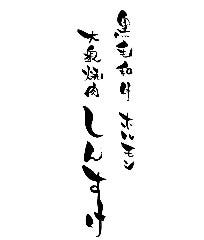 黒毛和牛 ホルモン
大衆焼肉 しんすけ